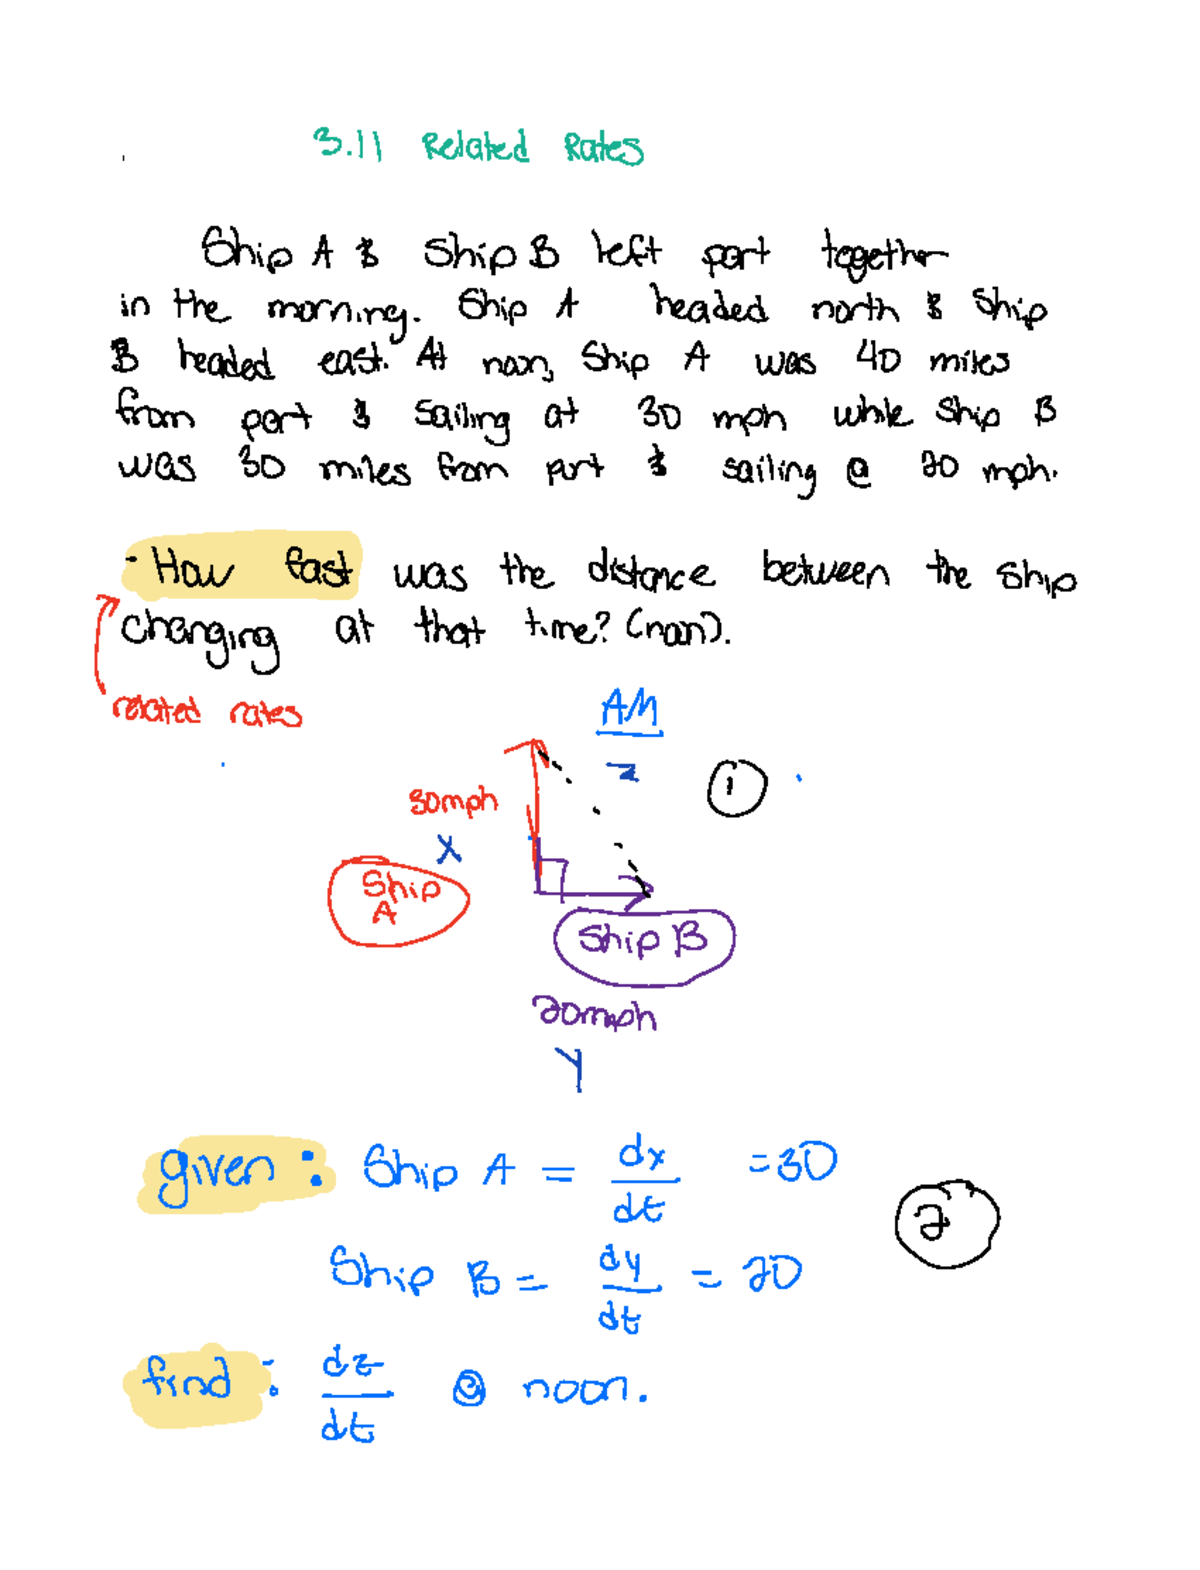 3.11 Related Rates
Ship A & Ship B left port together
in the morning. Ship A headed north & Ship
B headed east. At noon, Ship A was 40 miles
from port & sailing at 30 mph while Ship B
was 30 miles from port & sailing @ 20 mph.
- How fast was the distance between the ship
changing at that time? (noon).
related rates
AM
z
1
30mph
X
Ship
A
Ship B
20mph
Y
given: Ship A = dx/dt = 30
2
Ship B = dy/dt = 20
find: dz/dt @ noon.